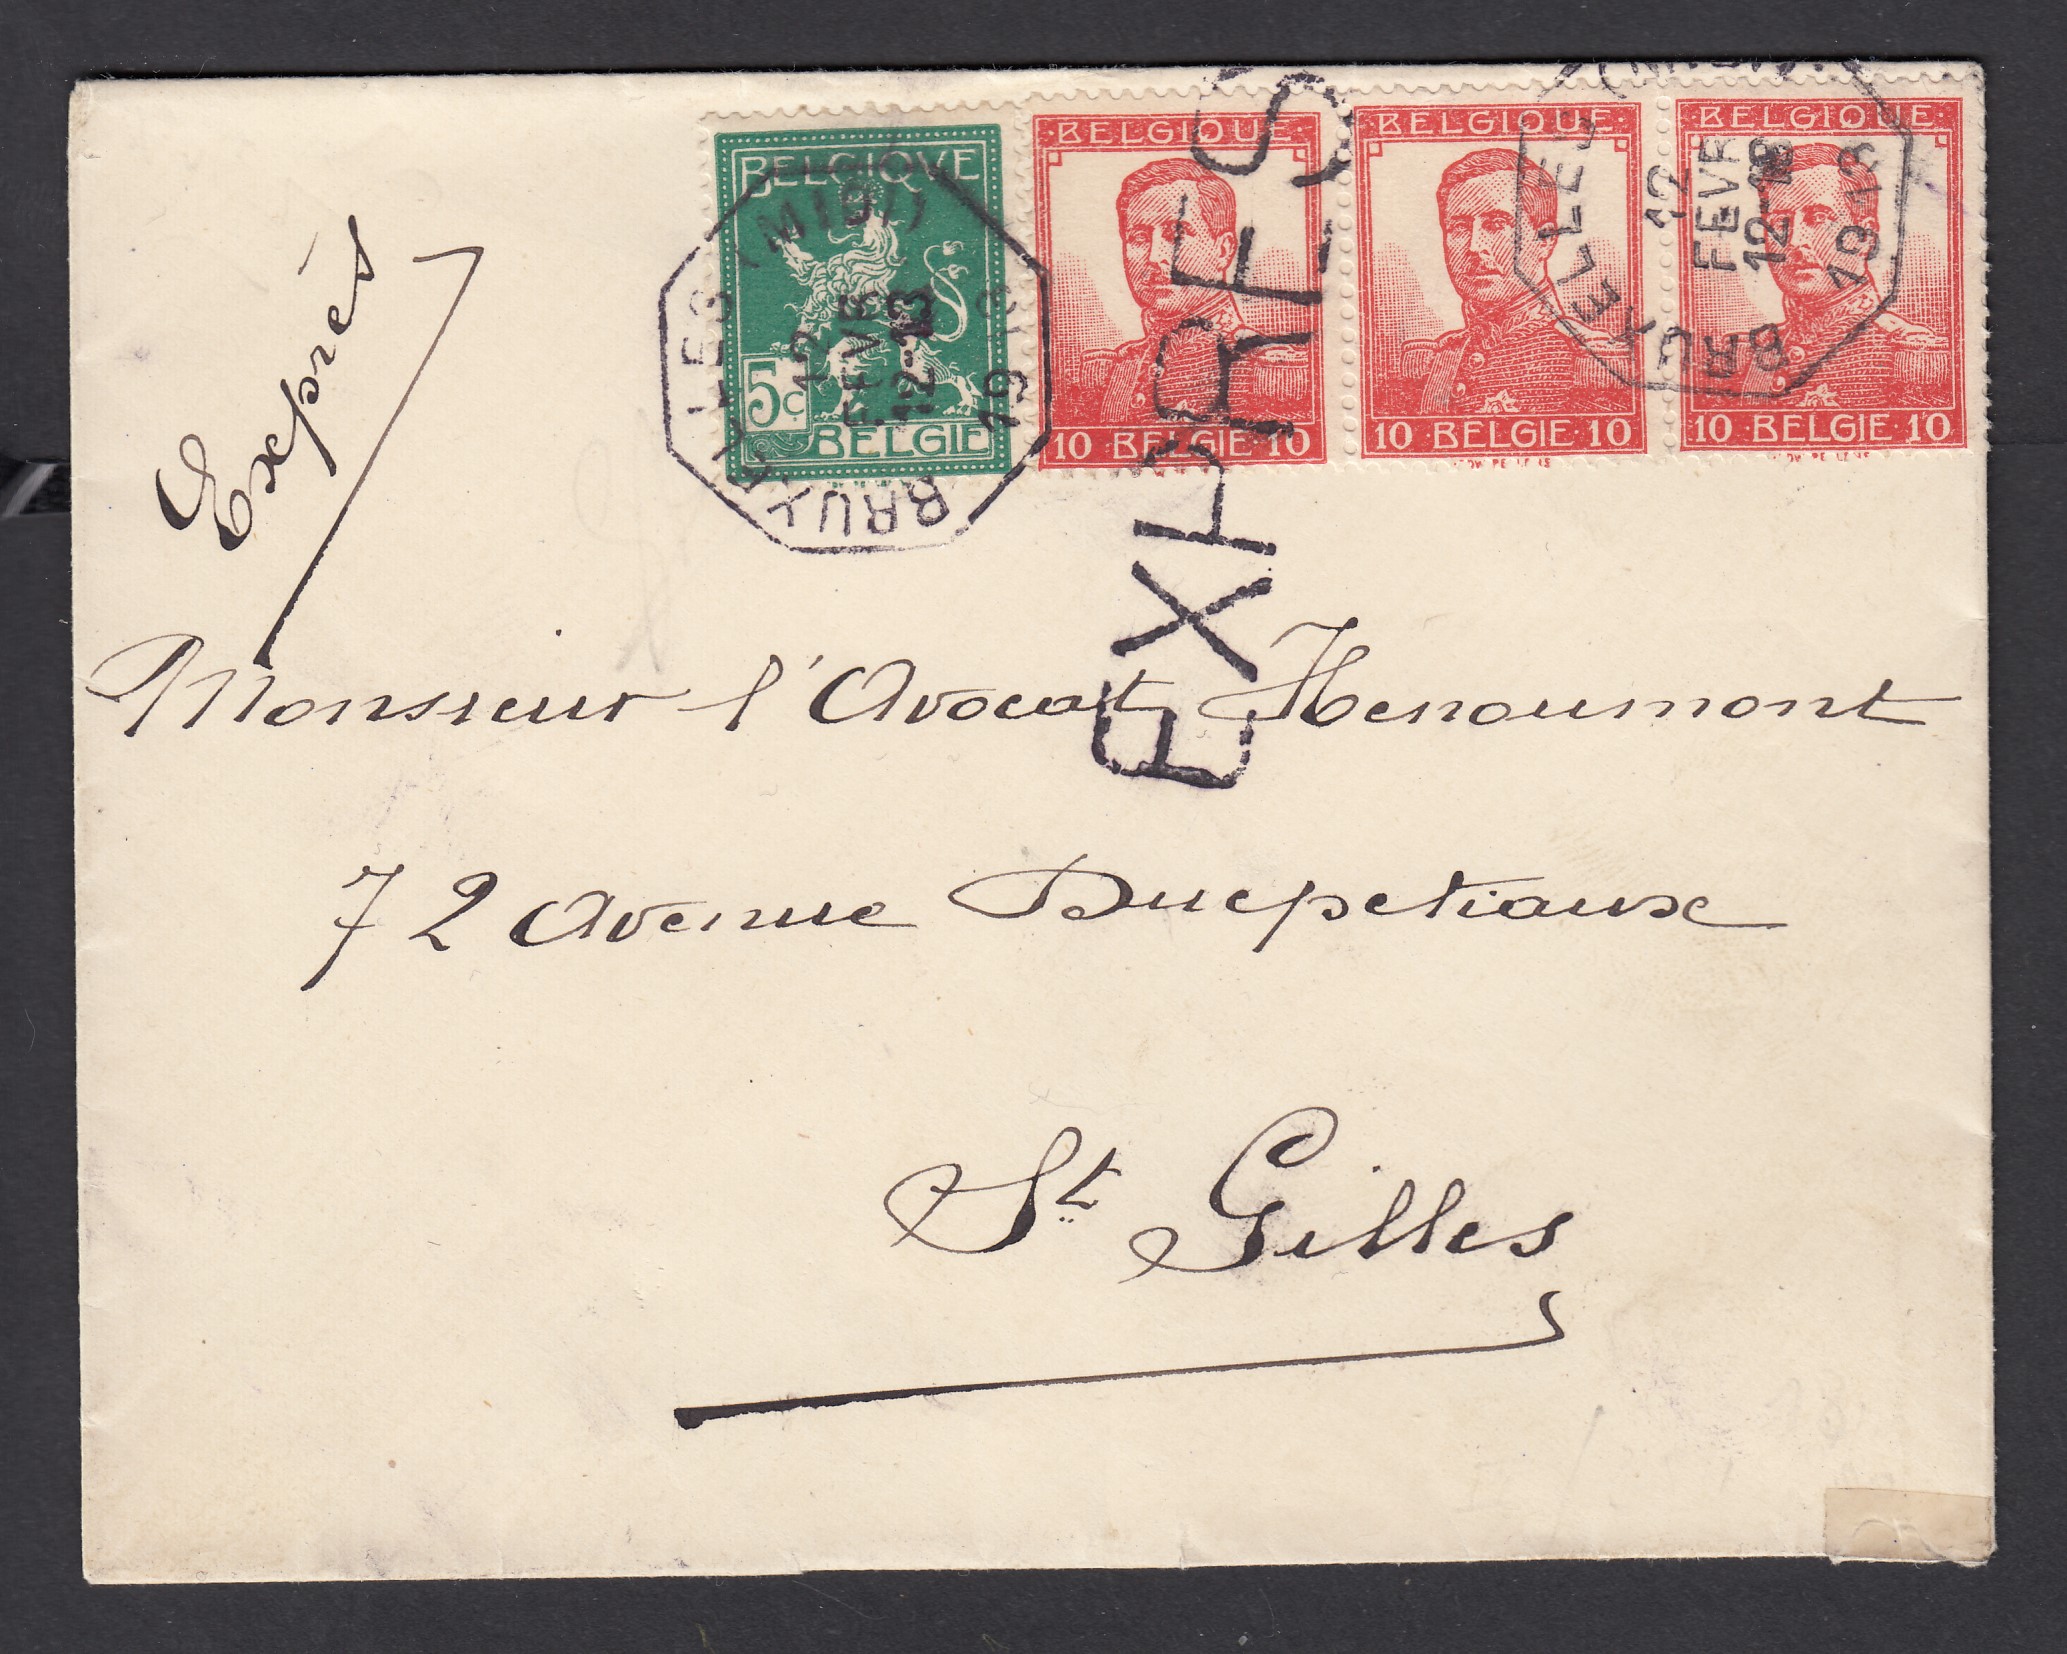 Exprès
BELGIQVE
5c.
BELGIE
BELGIQUE
10 BELGIE 10
BELGIQUE
10 BELGIE 10
BELGIQUE
10 BELGIE 10
BRUXELLES (MIDI)
12
FEVR
12-13
1913
BRUXELLES (MIDI)
12
FEVR
12-13
1913
EXPRES
Monsieur l'Avocat Henoumont
72 Avenue Ducpetiaux
St Gilles